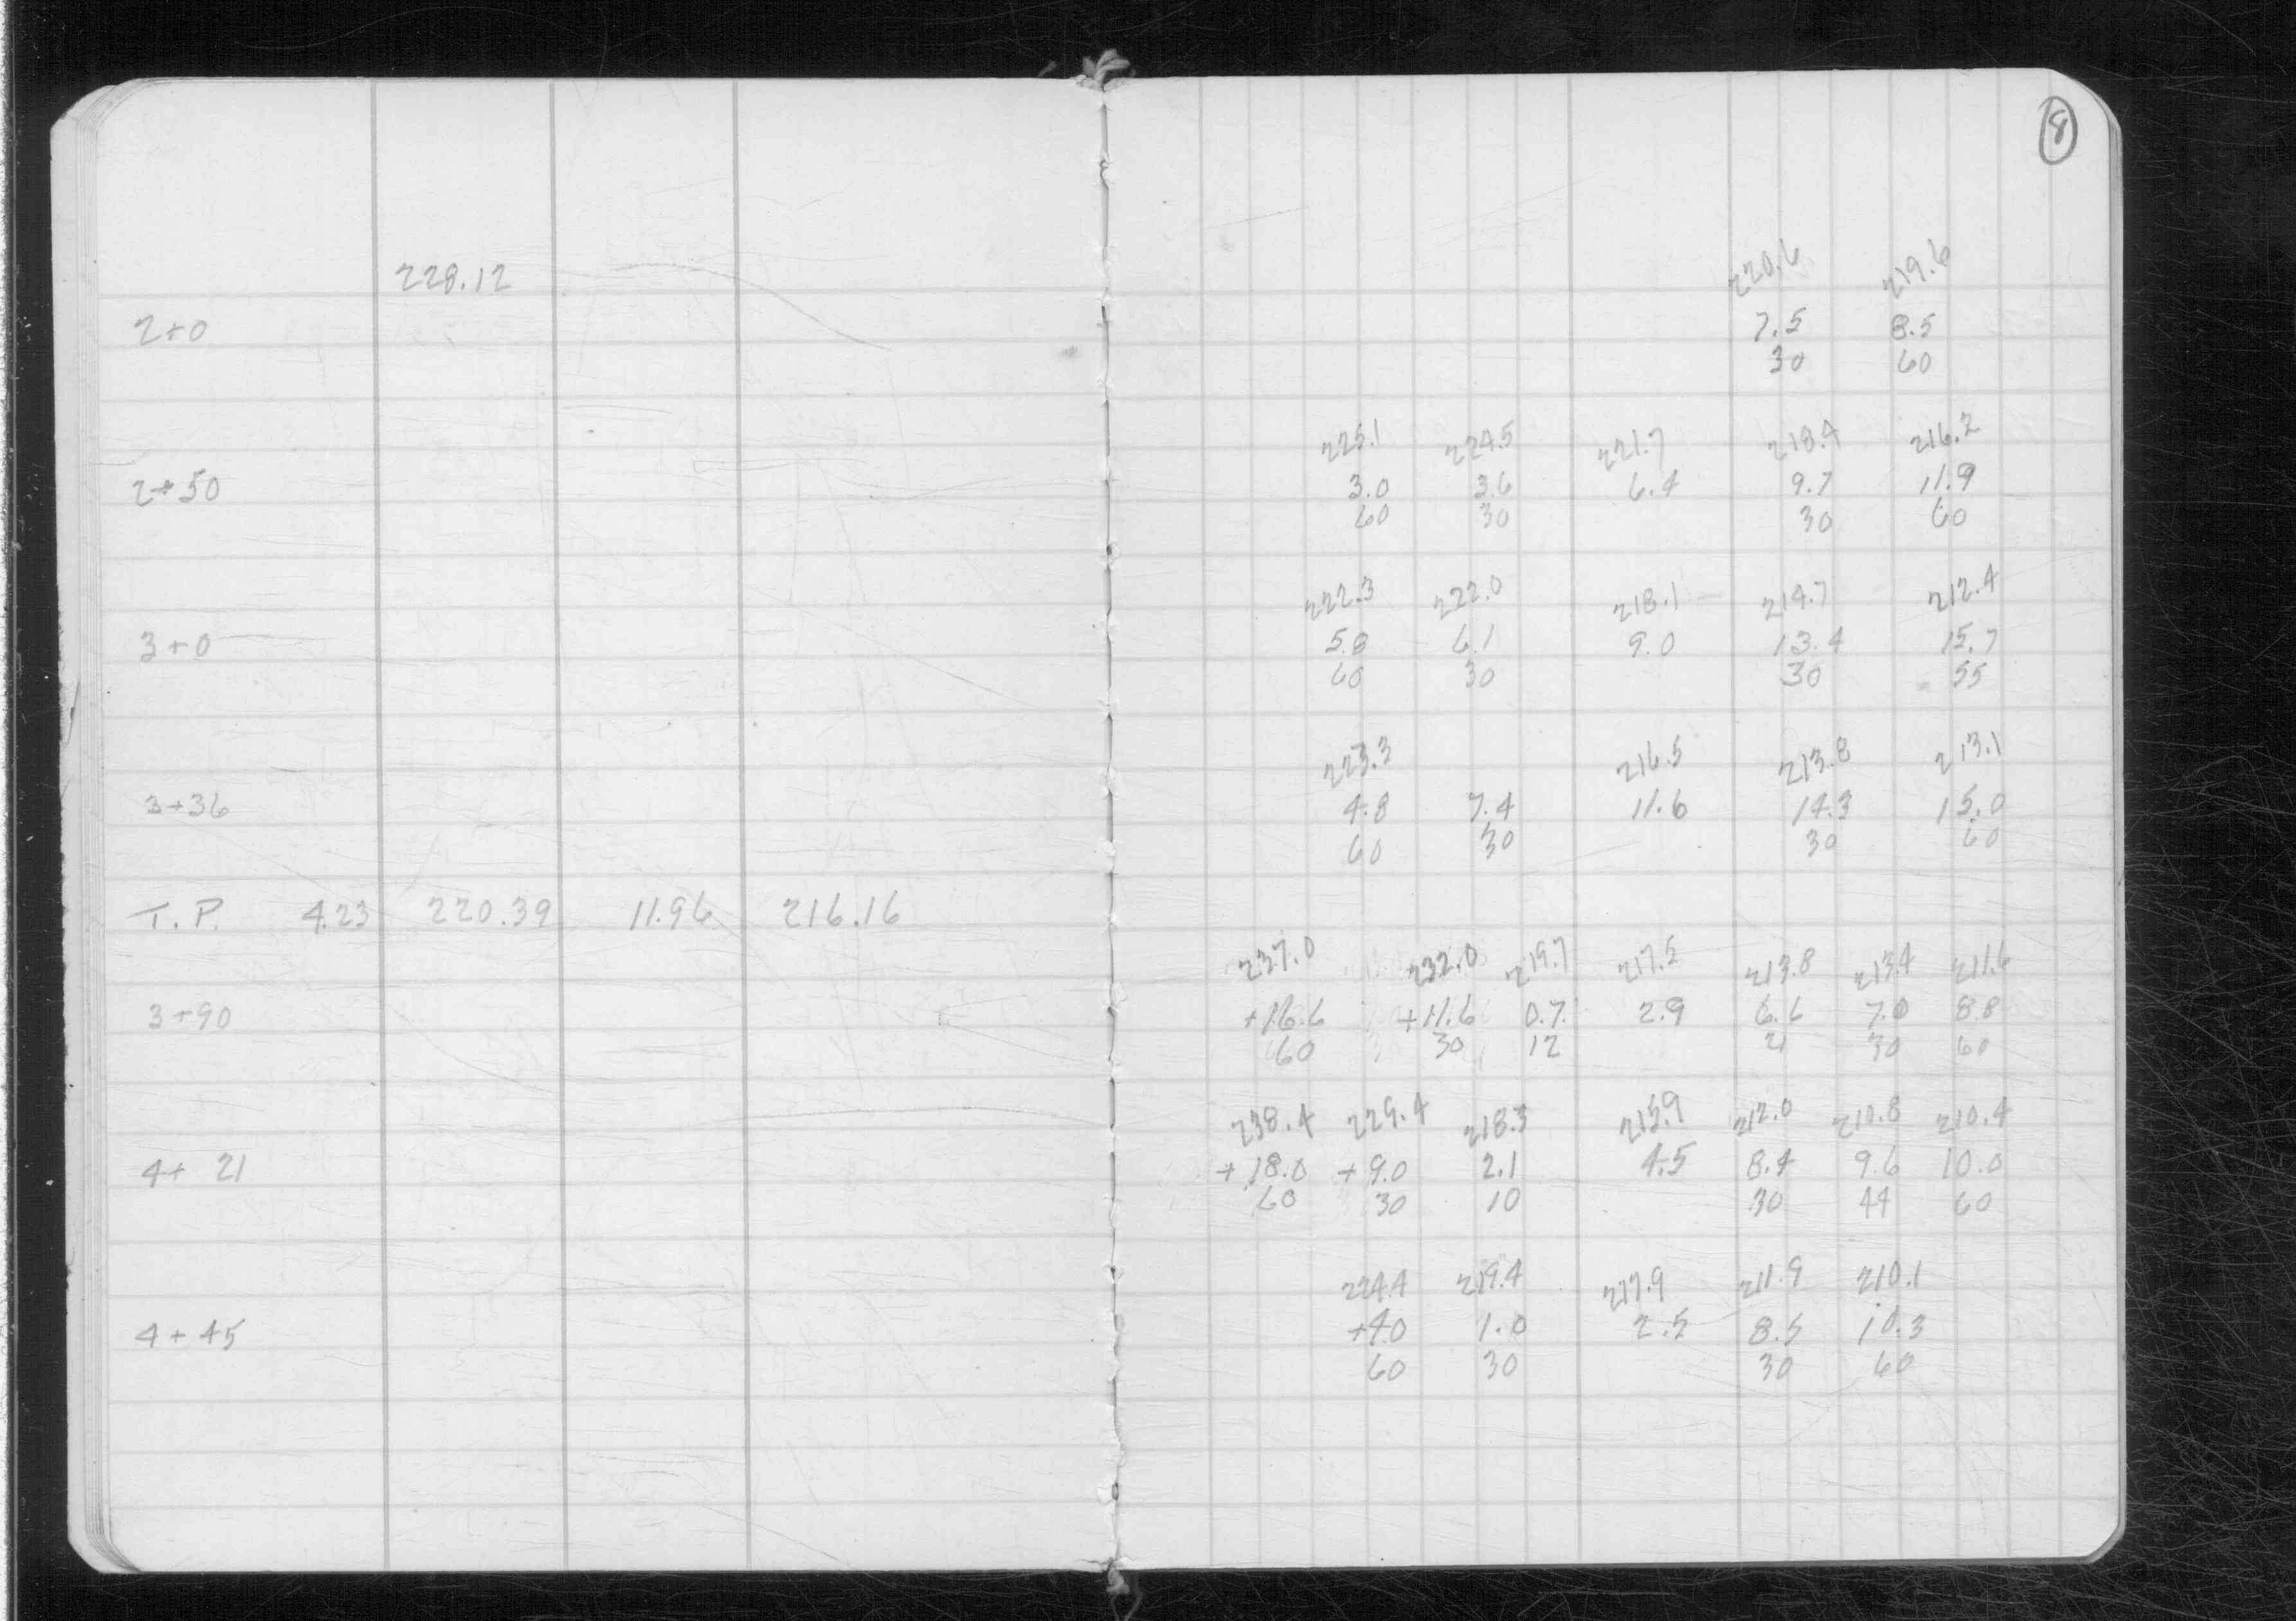 8
228.12
220.6 219.6
2+0 7.5 8.5
30 60
225.1 224.5 221.7 218.4 216.2
2+50 3.0 3.6 6.4 9.7 11.9
60 30 30 60
222.3 222.0 218.1 214.7 212.4
3+0 5.8 6.1 9.0 13.4 15.7
60 30 30 55
223.3 216.5 213.8 213.1
3+36 4.8 7.4 11.6 14.3 15.0
60 30 30 60
T.P. 4.23 220.39 11.96 216.16
237.0 232.0 219.7 217.5 213.8 213.4 211.6
3+90 +16.6 +11.6 0.7 2.9 6.6 7.0 8.8
60 30 12 21 30 60
238.4 229.4 218.3 215.9 212.0 210.8 210.4
4+21 +18.0 +9.0 2.1 4.5 8.4 9.6 10.0
60 30 10 30 44 60
224.4 219.4 217.9 211.9 210.1
4+45 +4.0 1.0 2.5 8.5 10.3
60 30 30 60